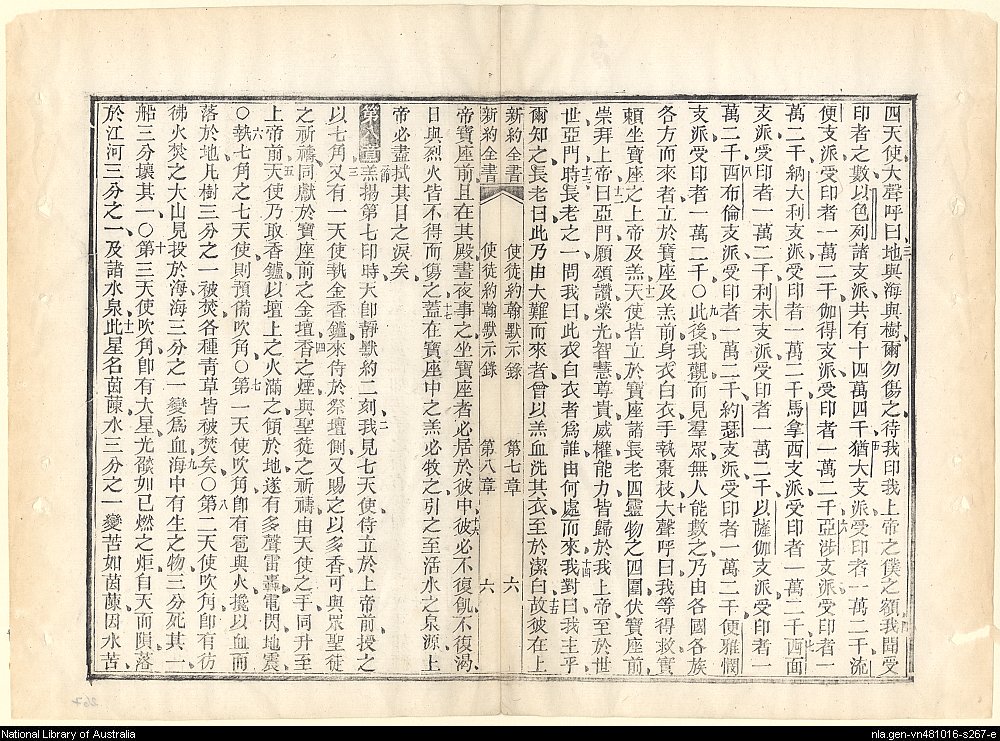 四天使大聲呼曰地與海與樹爾勿傷之待我印我上帝之僕之額我聞受
印者之數以色列諸支派共有十四萬四千猶大支派受印者一萬二千流
便支派受印者一萬二千伽得支派受印者一萬二千亞涉支派受印者一
萬二千納大利支派受印者一萬二千馬拿西支派受印者一萬二千西面
支派受印者一萬二千利未支派受印者一萬二千以薩伽支派受印者一
萬二千西布倫支派受印者一萬二千約瑟支派受印者一萬二千便雅憫
支派受印者一萬二千〇此後我觀而見羣眾無人能數之乃由各國各族
各方而來者立於寶座及羔前身衣白衣手執棗枝大聲呼曰我等得救實
賴坐寶座之上帝及羔天使皆立於寶座諸長老四靈物之四圍伏寶座前
崇拜上帝曰亞門願頌讚榮光智慧尊貴威權能力皆歸於我上帝至於世
世亞門時長老之一問我曰此衣白衣者爲誰由何處而來我對曰我主乎
爾知之長老曰此乃由大難而來者曾以羔血洗其衣至於潔白故彼在上
新約全書 使徒約翰默示錄 第七章 六
新約全書 使徒約翰默示錄 第八章 六
帝寶座前且在其殿晝夜事之坐寶座者必居於彼中彼必不復飢不復渴
日與烈火皆不得而傷之蓋在寶座中之羔必牧之引之至活水之泉源上
帝必盡拭其目之淚矣
第八章 羔揭第七印時天卽靜默約二刻我見七天使侍立於上帝前授之
以七角又有一天使執金香鑪來侍於祭壇側又賜之以多香可與眾聖徒
之祈禱同獻於寶座前之金壇香之煙與聖徒之祈禱由天使之手同升至
上帝前天使乃取香鑪以壇上之火滿之傾於地遂有多聲雷轟電閃地震
〇執七角之七天使則預備吹角〇第一天使吹角卽有雹與火攙以血而
落於地凡樹三分之一被焚各種靑草皆被焚矣〇第二天使吹角卽有彷
彿火焚之大山見投於海海三分之一變爲血海中有生之物三分死其一
船三分壞其一〇第三天使吹角卽有大星光燄如已燃之炬自天而隕落
於江河三分之一及諸水泉此星名茵蔯水三分之一變苦如茵蔯因水苦
267
National Library of Australia
nla.gen-vn481016-s267-e